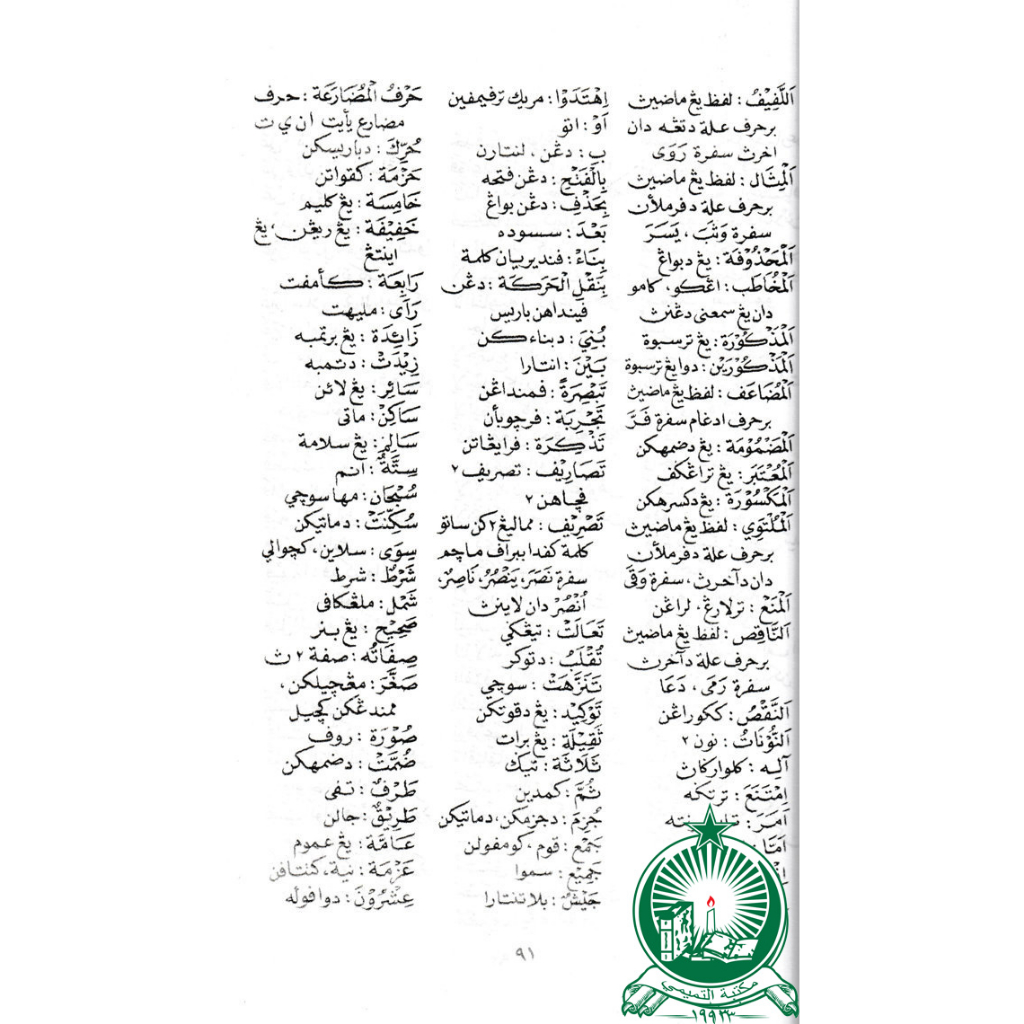 اَللَّفِيْفُ : لفظ يڠ ماضيث
برحرف علة دتڠه دان
اخرث سفرة رَوَى
اَلْمِثَال : لفظ يڠ ماضيث
برحرف علة دفرملأن
سفرة وَثَبَ ، يَسَرَ
اَلْمَحْذُوْفَة : يڠ دبواڠ
اَلْمُخَاطَب : اڠكو، كامو
دان يڠ سمعنى دڠنث
اَلْمَذْكُوْرَة : يڠ ترسبوة
اَلْمَذْكُوْرَيْن : دوا يڠ ترسبوة
اَلْمُضَاعَف : لفظ يڠ ماضيث
برحرف ادغام سفرة فَرَّ
اَلْمَضْمُوْمَة : يڠ دضمهكن
اَلْمُعْتَبَر : يڠ تراڠكف
اَلْمَكْسُوْرَة : يڠ دكسرهكن
اَلْمُلْتَوِي : لفظ يڠ ماضيث
برحرف علة دفرملأن
دان دآخرث، سفرة وَقَى
اَلْمَنْع : ترلارڠ، لراڠن
اَلنَّاقِص : لفظ يڠ ماضيث
برحرف علة دآخرث
سفرة رَمَى ، دَعَا
اَلنَّقْصُ : ككوراڠن
اَلنُّوْنَاتُ : نون ٢
آلِه : كلواركاث
اِمْتَنَعَ : ترتكه
اَمَرَ :
اَمَّا :
اِهْتَدَوْا : مريك ترفيمفين
اَوْ : اتو
بِ : دڠن ، لنتارن
بِالْفَتْحِ : دڠن فتحه
بِحَذْفِ : دڠن بواڠ
بَعْدَ : سسوده
بِنَاءْ : فنديريان كلمة
بِنَقْلِ الْحَرَكَة : دڠن
فيندهن باريس
بُنِيَ : دبناء كن
بَيْنَ : انتارا
تَبْصِرَةً : فمنداڠن
تَجْرِبَة : فرچوبأن
تَذْكِرَة : فرايڠاتن
تَصَارِيْف : تصريف ٢
فچاهن ٢
تَصْرِيْف : مماليڠ٢كن ساتو
كلمة كفدا ببراف ماچم
سفرة نَصَرَ، يَنْصُرُ، نَاصِرٌ،
اُنْصُرْ دان لاينث
تَعَالَتْ : تيڠكي
تُقْلَبُ : دتوكر
تَنَزَّهَتْ : سوچي
تَوْكِيْد : يڠ دقوتكن
ثَقِيْلَة : يڠ برات
ثَلَاثَة : تيك
ثُمَّ : كمدين
جُزِمَ : دجزمكن، دماتيكن
جَمْع : قوم ، كومفولن
جَمِيْع : سموا
جَيْشٌ : بلا تنتارا
حَرْفُ الْمُضَارَعَة : حرف
مضارع يأيت ا ن ي ت
حُرِّكَ : دباريسكن
حَزْمَة : كقواتن
خَامِسَة : يڠ كليم
خَفِيْفَة : يڠ ريڠن، يڠ
اينتڠ
رَابِعَة : كأمفت
رَآى : مليهت
زَائِدَة : يڠ برتمبه
زِيْدَتْ : دتمبه
سَائِر : يڠ لائن
سَاكِنْ : ماتى
سَالِمْ : يڠ سلامة
سِتَّةٌ : انم
سُبْحَان : مها سوچي
سُكِّنَتْ : دماتيكن
سِوَى : سلاين، كچوالي
شَرْطٌ : شرط
شَمْل : ملڠكافى
صَحِيْح : يڠ بنر
صِفَاتُه : صفة ٢ ث
صَغَّرَ : مڠچيلكن،
ممندڠكن كچيل
صُوْرَة : روف
ضُمَّتْ : دضمهكن
طَرْفٌ : تفى
طَرِيْقٌ : جالن
عَامَّة : يڠ عموم
عَزْمَة : نية، كتتافن
عِشْرُوْنَ : دوا فوله
٩١
مكتبة التميمي
١٩٩٣٣